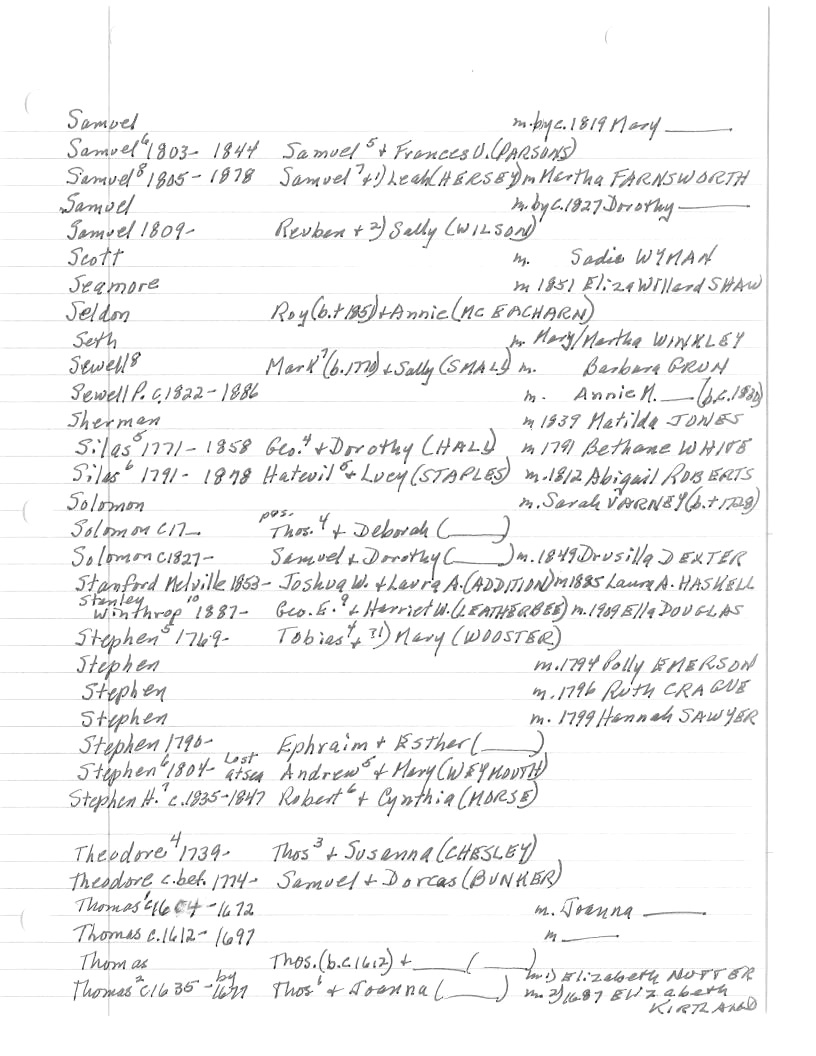 Samuel m. by c. 1819 Mary ______
Samuel⁶ 1803- 1844 Samuel⁵ + Frances U. (PARSONS)
Samuel⁸ 1805- 1878 Samuel⁷ + 1) Leah (HERSEY) m Martha FARNSWORTH
Samuel m. by c. 1827 Dorothy ______
Samuel 1809- Reuben + 2) Sally (WILSON)
Scott m. Sadie WYMAN
Seamore m 1851 Eliza Willard SHAW
Seldon Roy (b. + 1851) + Annie (MC EACHARN)
Seth m. Mary/Martha WINKLEY
Sewell⁸ Mark⁷ (b. 1770) + Sally (SMALL) m. Barbara GRUN
Sewell P. c. 1822 - 1886 m. Annie M. ___ (b.c. 1830)
Sherman m 1839 Matilda JONES
Silas⁵ 1771 - 1858 Geo.⁴ + Dorothy (HALL) m 1791 Bethane WHITE
Silas⁶ 1791 - 1878 Hatevil⁵ + Lucy (STAPLES) m. 1812 Abigail ROBERTS
Solomon m. Sarah VARNEY (b. + 1728)
Solomon C17__ pos. Thos.⁴ + Deborah (____)
Solomon c1827- Samuel + Dorothy (____) m. 1849 Drusilla DEXTER
Stanford Melville 1853- Joshua W. + Laura A. (ADDITION) m 1885 Laura A. HASKELL
Stanley
Winthrop¹⁰ 1887- Geo. E.⁹ + Harriet W. (LEATHERBEE) m. 1909 Ella DOUGLAS
Stephen⁵ 1769- Tobias⁴ + ?1) Mary (WOOSTER)
Stephen m. 1794 Polly EMERSON
Stephen m. 1796 Ruth CRAGUE
Stephen m. 1799 Hannah SAWYER
Stephen 1790- Ephraim + Esther (____)
Stephen⁶ 1804- Lost at sea Andrew⁵ + Mary (WEYMOUTH)
Stephen H.⁷ c. 1835-1847 Robert⁶ + Cynthia (MORSE)
Theodore⁴ 1739- Thos³ + Susanna (CHESLEY)
Theodore c. bef. 1774- Samuel + Dorcas (BUNKER)
Thomas¹ c1604 - 1672 m. Joanna ______
Thomas c. 1612- 1697 m ____
Thomas Thos. (b.c 1612) + ____ (____)
m 1) Elizabeth NUTTER
Thomas² c1635 - by 1677 Thos¹ + Joanna (____) m. 2) 1687 Elizabeth
KIRTLAND